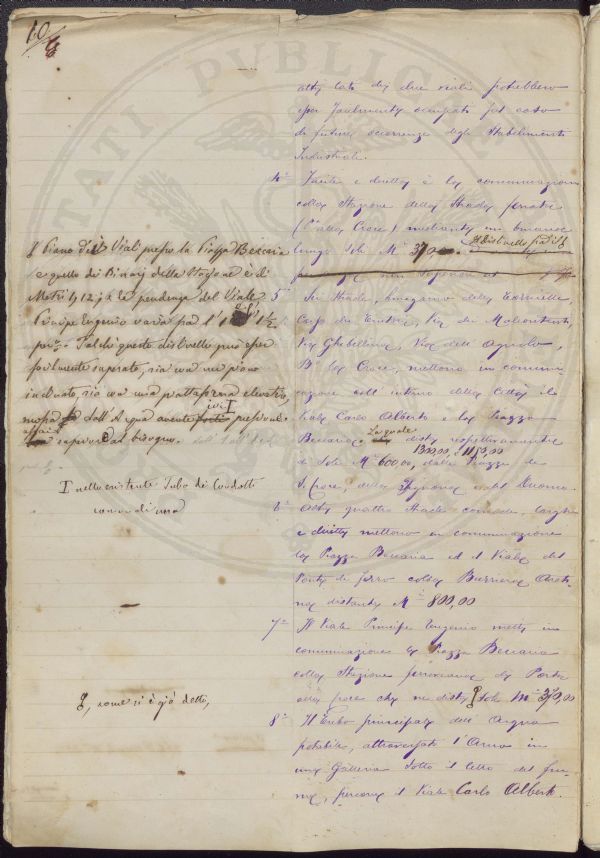 10
altro lato dei due viali potrebbero
esser facilmente occupati pel caso
di future occorrenze degli Stabilimenti
Industriali.
4° Facile e diretta è la comunicazione
colla Stazione delle Strade ferrate
(Porta alla Croce) mediante un binario
lungo Sole M. 370
Il dislivello fra il
5° Sei Strade, Lungarno della Zecca,
Corso dei Tintori, Via dei Malcontenti,
Via Ghibellina, Via dell' Agnolo,
Bgo la Croce, mettono in comuni
cazione coll' interno della Città il
Viale Carlo Alberto e la Piazza
Beccaria. La quale dista respettivamente
1300,00, e 1150,00
di Sole M. 600.00, dalla Piazza di
S. Croce, della Signoria e del Duomo.
6° Altre quattro Strade comode, larghe
e dirette mettono in comunicazione
la Piazza Beccaria ed il Viale del
Ponte di ferro colla Barriera Aretina
distante M. 800,00
7° Il Viale Principe Eugenio mette in
comunicazione la Piazza Beccaria
colla Stazione ferroviaria di Porta
alla Croce che ne dista Sole M. 370,00
8° Il Tubo principale dell' Acqua
potabile, attraversato l'Arno in
una Galleria Sotto il letto del fiu-
me, percorre il Viale Carlo Alberto.
Il Piano dei Viali presso la Piazza Beccaria
e quello dei Binarj della Stazione è di
Metri 4,12; e la pendenza del Viale
Principe Eugenio varia fra l' 1 e l' 1 1/2
per %. Talchè questo dislivello può esser
facilmente superato, sia con un piano
inclinato, sia con una piattaforma elevatoria,
mossa dall' Acqua avente ivi pressione
superiore al bisogno.
I nella esistente Tubo dei Condotti
come di una
E, come si è già detto,